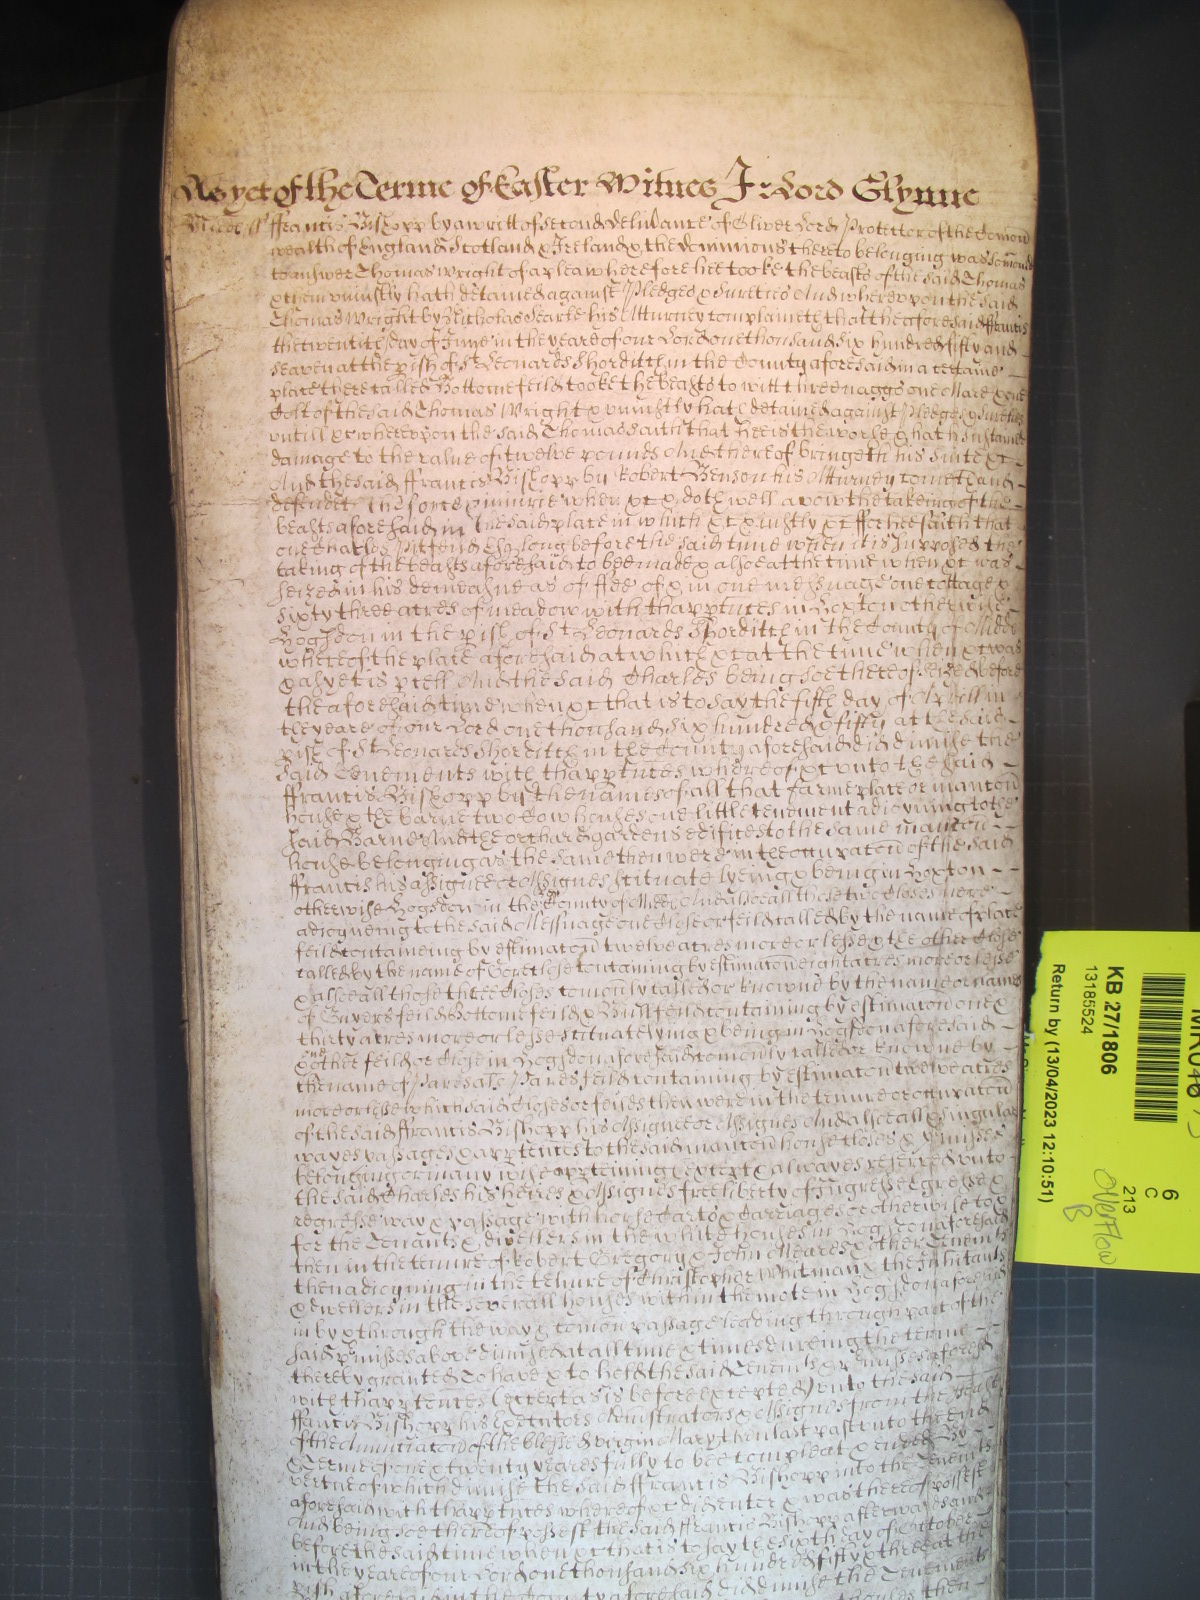 As yet of the Terme of Easter Witnes J: Lord Glynne
Midds ss ffrancis Bishopp by a writt of second delivrance of Oliver Lord Protector of the Comon
wealth of England Scotland & Ireland & the dominions thereto belonging was somoned
to answer Thomas Wright of a plea wherefore hee tooke the beasts of the said Thomas
& them uniustly hath detained against Pledges & sureties And whereupon the said
Thomas Wright by Nicholas Searle his Atturney complaineth that the aforesaid ffrancis
the twentith day of June in the yeare of our Lord one thousand six hundred fifty and
seaven at the pish of St Leonards Shorditch in the County aforesaid in a certaine
place there called Bottome feild tooke the beasts to witt three naggs one Mare & one
Colt of the said Thomas Wright & uniustly hath detained against Pledges & sureties
untill &c whereupon the said Thomas saith that hee is the worse & hath sustained
damage to the value of twelve pounds And thereof bringeth his suite &c
And the said ffrancis Bishopp by Robert Benson his Atturney cometh and
defendeth the force & iniurie when &c & doth well avow the takeing of the
beasts aforesaid in the said place in which &c & iustly &c ffor hee saith that
one Charles Pitfeild Esq long before the said time when it is supposed the
taking of the beasts aforesaid to bee made & alsoe at the time when &c was
seized in his demeasne as of ffee of & in one messuage one cottage &
sixty three acres of meadow with thapptnces in Hoxton otherwise
Hogsdon in the pish of St Leonards Shorditch in the County of Midds
whereof the place aforesaid at which &c at the time when &c was
& as yet is pcell And the said Charles being soe thereof seized before
the aforesaid time when &c that is to say the fifth day of Aprill in
the yeare of our Lord one thousand six hundred & fifty at the said
pish of St Leonards Shorditch in the County aforesaid did dimise the
said Tenements with thapptnces whereof &c unto the said
ffrancis Bishopp by the names of all that farme place or mancon
house & the barne two Cow houses one little tenement adioyning to the
said Barne And the orchard gardens edifices to the same mancon
house belonging as the same then were in the occupacon of the said
ffrancis his Assignee or Assignes scituate lyeing & being in Hoxton
otherwise Hogsdon in the County of Midds And alsoe all those two Closes neere
adioyneing to the said Messuage one close or feild called by the name of place
feild containeing by estimacon twelve acres more or lesse & the other Close
called by the name of Gore close containing by estimacon eight acres more or lesse
& alsoe all those three Closes comonly called or knowne by the name or names
of Guyers feild Bottome feild & Bush feild containing by estimacon one &
thirty acres more or lesse scituate lying & being in Hogsdon aforesaid
& one other feild or Close in Hogsdon aforesaid comonly called or knowne by
the name of Pares als Pares feild containing by estimacon twelve acres
more or lesse which said Closes or feilds then were in the tenure or occupacon
of the said ffrancis Bishopp his Assignee or Assignes And alsoe all & singular
wayes passages & apptences to the said mancon house closes & pmisses
belonging or in any wise appteining except & alwayes reserved unto
the said Charles his heires & Assignes free liberty of Ingresse Egresse &
regresse way & passage with horse Carts & Carriages or otherwise to &
for the Tenants & dwellers in the white houses in Hogsdon aforesaid
then in the tenure of Robert Gregory & John Meares & other Tenemts
then adioyning in the tenure of Christopher Whitman & the Inhitants
& dwellers in the severall houses within the mote in Hogsdon aforesaid
in by & through the way & comon passage leading through part of the
said pmisses above dimised at all time & times dureing the terme
thereby granted To have & to hold the said Tenemts & pmisses aforesd
with thapptences (except as is before excepted) unto the said
ffrancis Bishopp his Executors Administrators & Assignes from the ffeast
of the Annunciacon of the blessed virgin Mary then last past unto the end
& Terme of one & twenty yeares fully to bee compleat & ended By
vertue of which dimise the said ffrancis Bishopp into the Tenemts
aforesaid with thapptnces whereof &c did enter & was thereof possest
And being soe thereof possest the said ffrancis Bishopp afterwards and
before the said time when &c that is to say the sixth day of October
in the yeare of our Lord one thousand six hundred fifty & three at the
pish aforesaid in the County aforesaid did dimise the Tenements
KB 27/1806
13185524
Return by (13/04/2023 12:10:51)
6
C
213
overflow
B